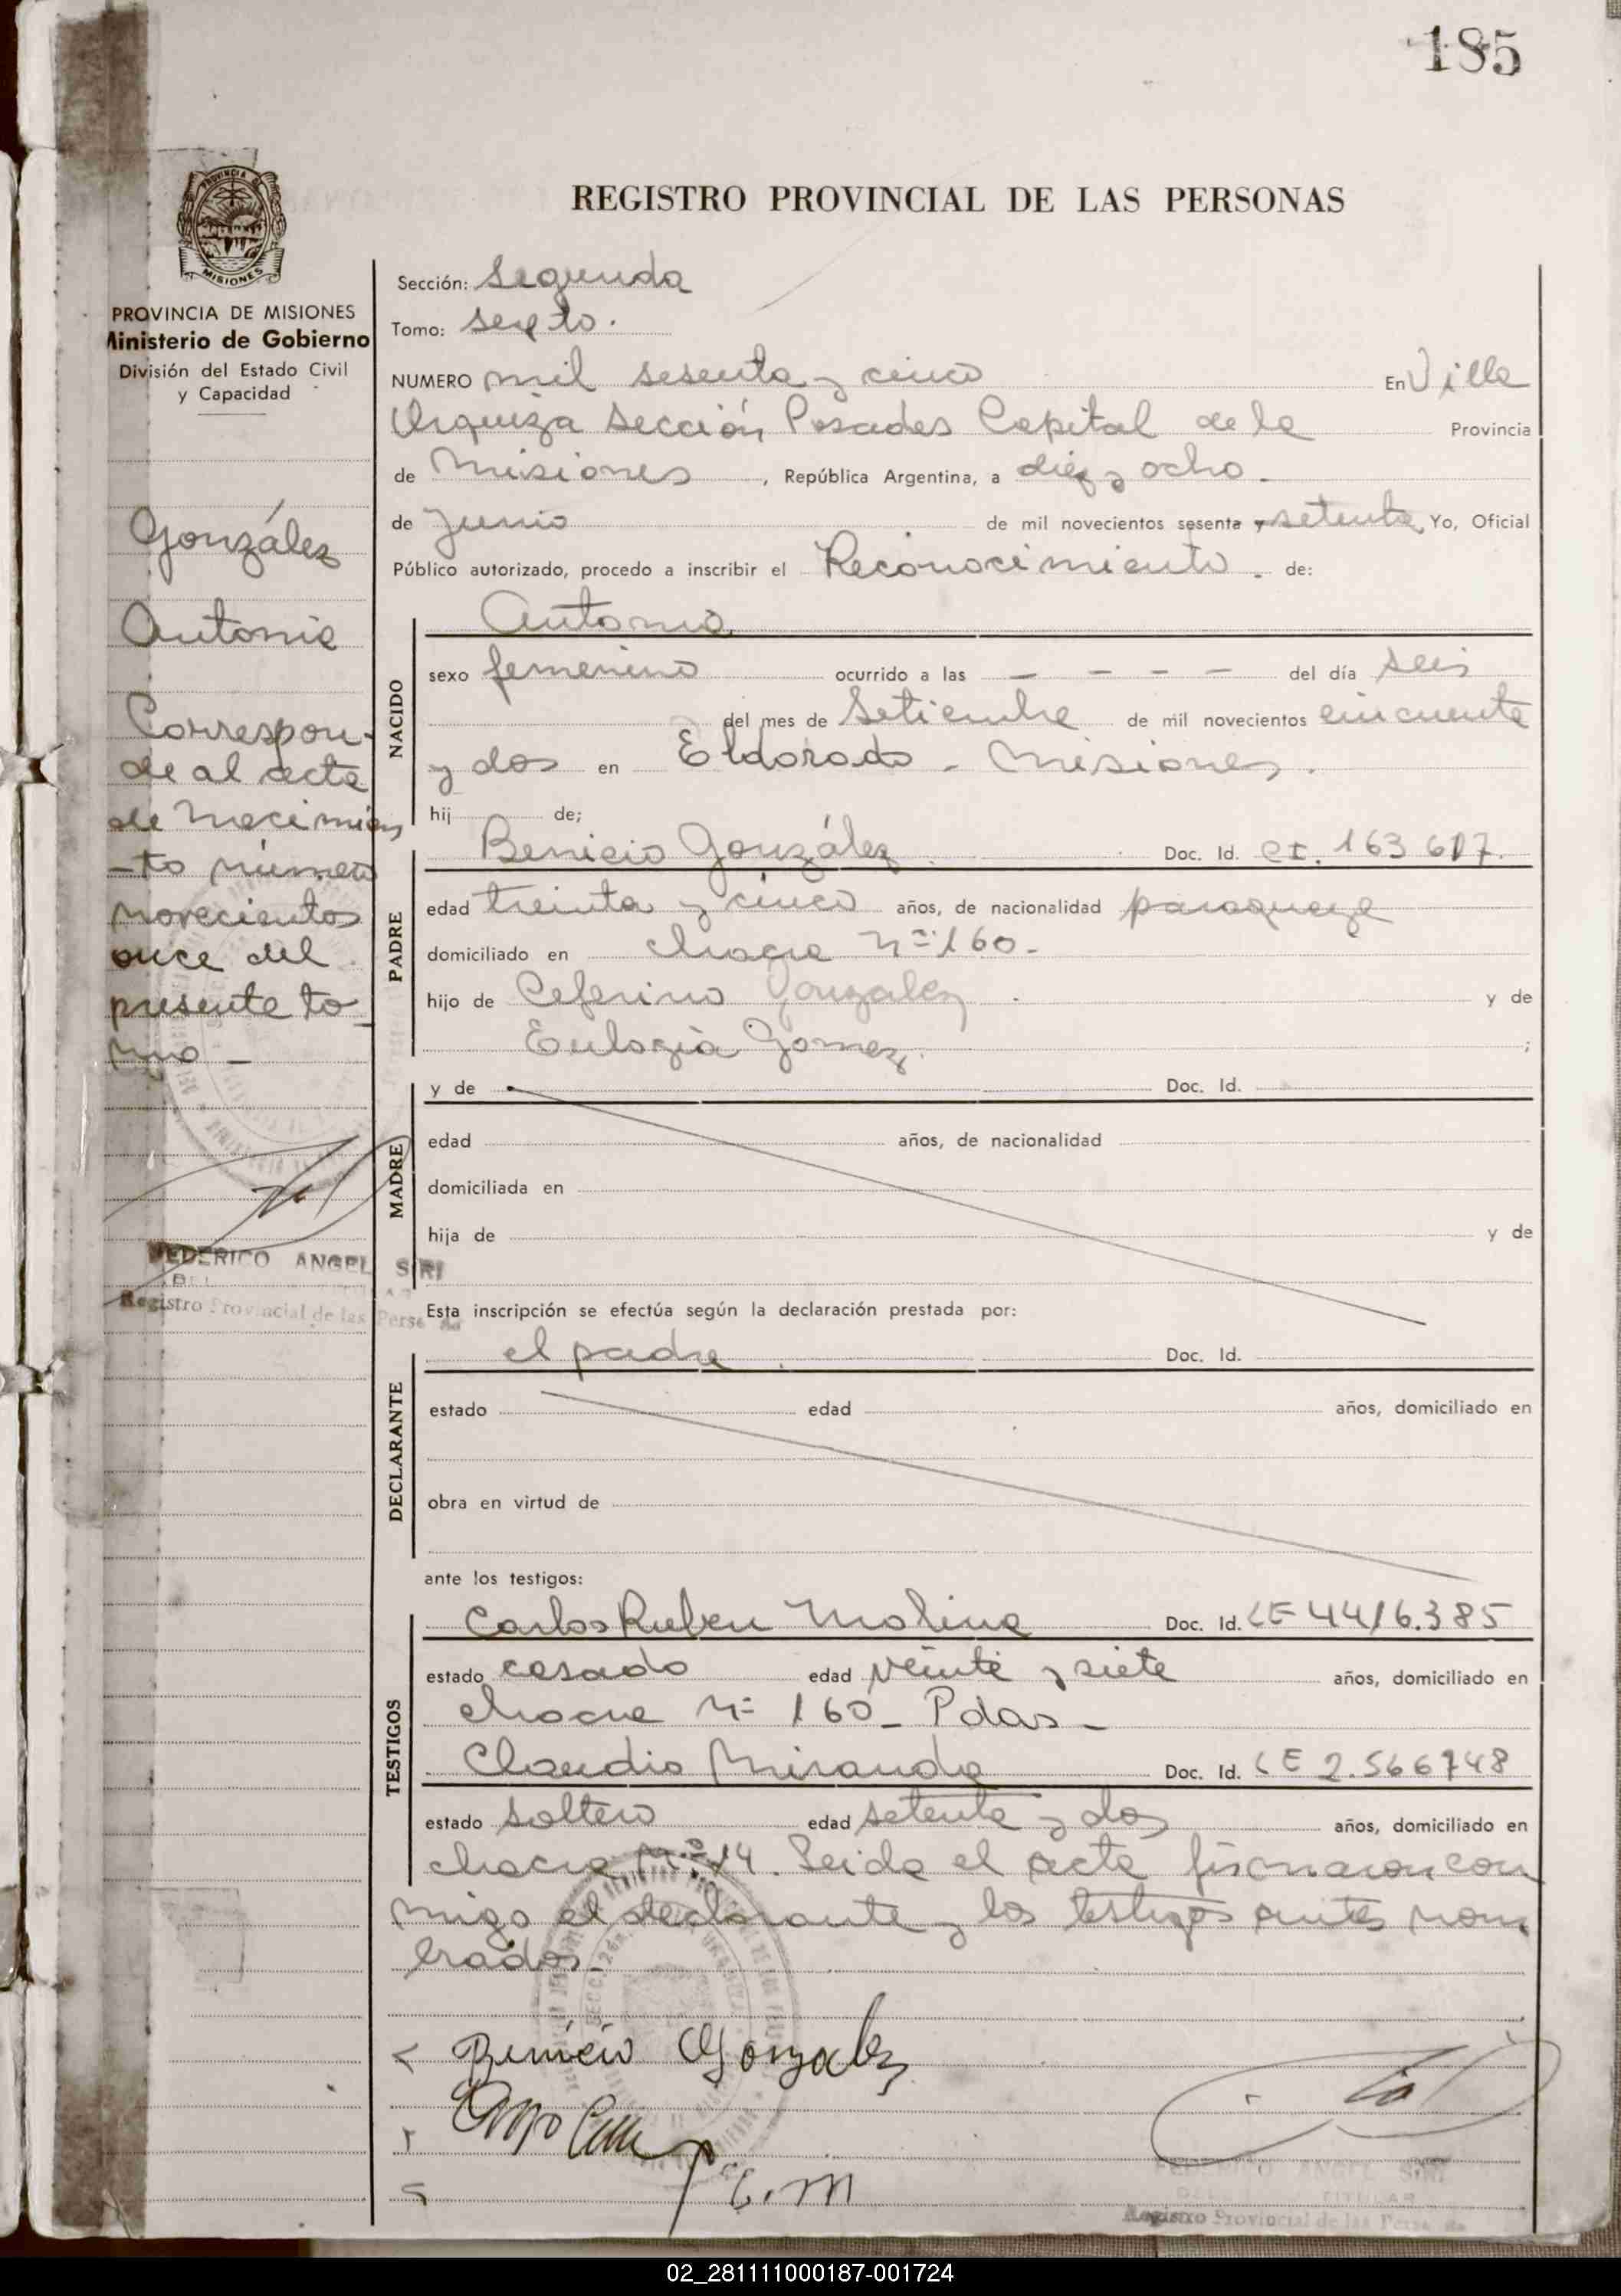 185
REGISTRO PROVINCIAL DE LAS PERSONAS
PROVINCIA DE MISIONES
Ministerio de Gobierno
División del Estado Civil
y Capacidad
González
Antonia
Correspon-
de al acta
de nacimien
-to número
novecientos
once del
presente to-
mo -
FEDERICO ANGEL SIRI
Registro Provincial de las Perso
Sección: Segunda
Tomo: sexto.
NUMERO mil sesenta y cinco En Villa
Urquiza Sección Posadas Capital de la Provincia
de Misiones, República Argentina, a diez y ocho
de Junio de mil novecientos sesenta y setenta, Yo, Oficial
Público autorizado, procedo a inscribir el Reconocimiento. de:
NACIDO
Antonia
sexo femenino ocurrido a las - - - - del día seis
del mes de Setiembre de mil novecientos cincuenta
y dos en Eldorado - Misiones.
hij de;
PADRE
Benicio González Doc. Id. CI. 163 617.
edad treinta y cinco años, de nacionalidad paraguaya
domiciliado en chacra nº 160-
hijo de Ceferino Gonzalez y de
Eulogia Gomez. ;
MADRE
y de Doc. Id.
edad años, de nacionalidad
domiciliada en
hija de y de
Esta inscripción se efectúa según la declaración prestada por:
DECLARANTE
el padre. Doc. Id.
estado edad años, domiciliado en
obra en virtud de
ante los testigos:
TESTIGOS
Carlos Ruben Molina Doc. Id. LE 4416.385
estado casado edad veinte y siete años, domiciliado en
chacra nº 160 - Pdas -
Claudio Miranda Doc. Id. LE 2.566748
estado soltero edad setenta y dos años, domiciliado en
chacra nº 14. Leida el acta firmaron con
migo el declarante y los testigos antes nom
brados.
Benicio Gonzalez
C. M
FEDERICO ANGEL SIRI
TITULAR
Registro Provincial de las Perso
02_281111000187-001724